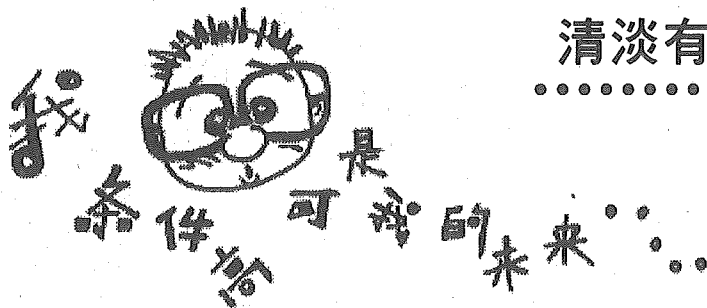 清淡有
我条件高可是我的未来……